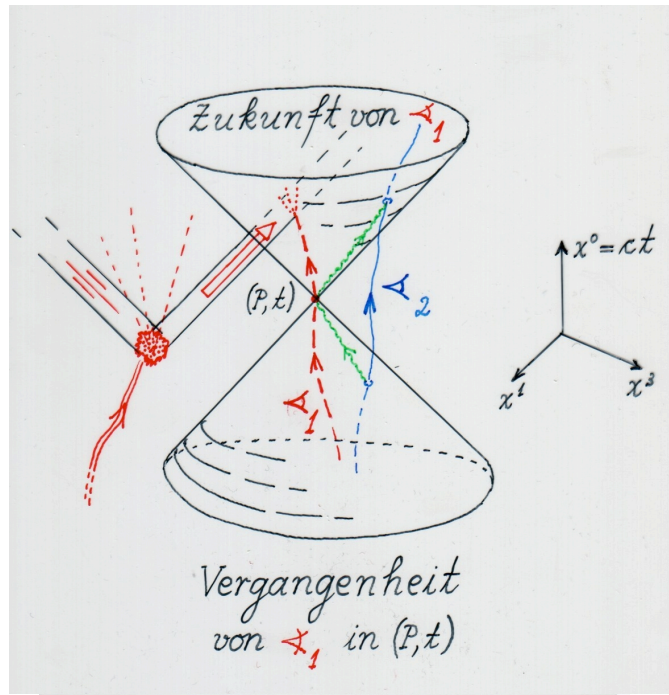 Zukunft von ∢1
(P,t)
∢2
∢1
x⁰=ct
x¹
x³
Vergangenheit
von ∢1 in (P,t)